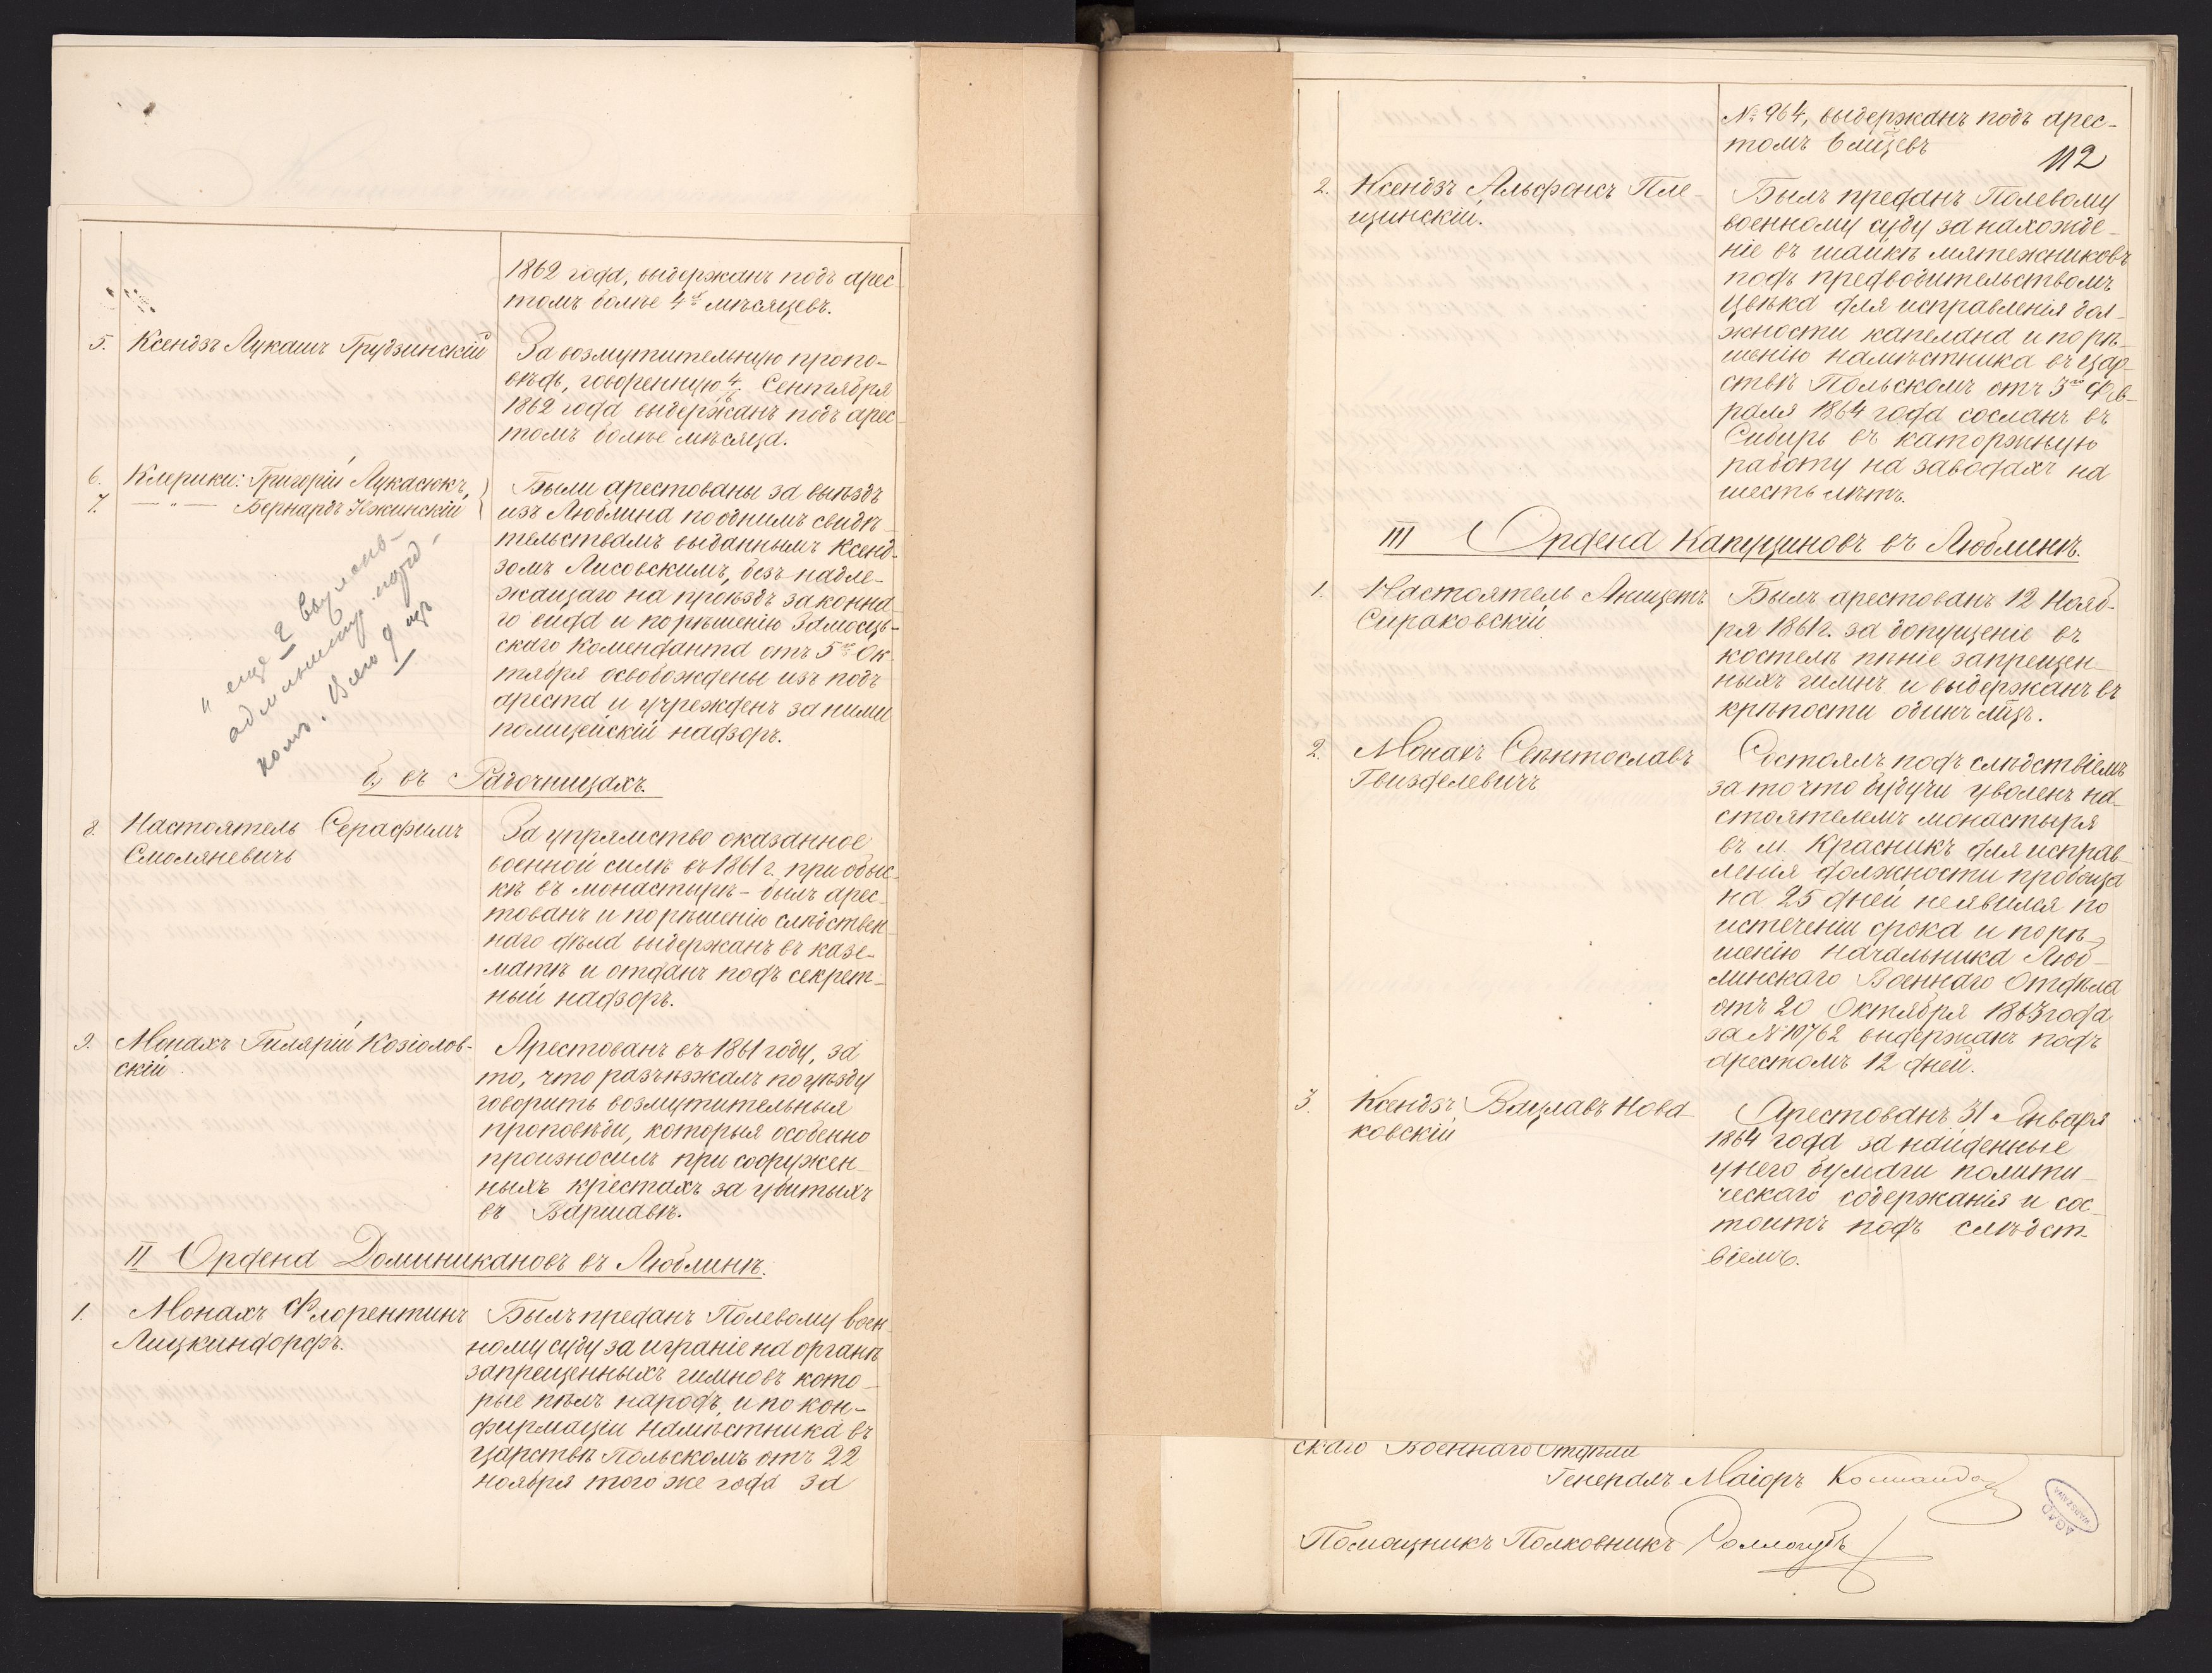 1862 года, выдержанъ подъ арес-
томъ болѣе 4х мѣсяцевъ.
5. Ксендзъ Лукашъ Грудзинскій
За возмутительную пропо-
вѣдь, говоренную 4/ Сентября
1862 года выдержанъ подъ арес-
томъ болѣе мѣсяца.
6. Клерики: Григорій Лукасюкъ,
7. — „ — Бернардъ Кжинскій
Были арестованы за выѣздъ
изъ Люблина по однимъ свидѣ-
тельствамъ выданнымъ Ксенд-
зомъ Лисовскимъ, безъ надле-
жащаго на проѣздъ законна-
го вида и по рѣшенію Замосць-
скаго Коменданта отъ 5го Ок-
тября освобождены изъ подъ
ареста и учрежденъ за ними
полицейскій надзоръ.
" еще 2
Всего 9
б, въ Радечницахъ.
8. Настоятель Серафимъ
Смоляневичъ
За упрямство оказанное
военной силѣ въ 1861 г. при обыс-
кѣ въ монастырѣ – былъ арес-
тованъ и по рѣшенію слѣдствен-
наго дѣла выдержанъ въ казе-
матѣ и отданъ подъ секрет-
ный надзоръ.
9. Монахъ Гилярій Козіолов-
скій
Арестованъ въ 1861 году, за
то, что разъѣзжалъ по уѣзду
говорить возмутительныя
проповѣди, которыя особенно
произносилъ при сооружен-
ныхъ крестахъ за убитыхъ
въ Варшавѣ.
II Ордена Доминикановъ въ Люблинѣ.
1. Монахъ Флорентинъ
Лицкиндорфъ.
Былъ преданъ Полевому воен-
ному суду за играніе на органѣ
запрещенныхъ гимновъ кото-
рые пѣлъ народъ, и по кон-
фирмаціи Намѣстника въ
Царствѣ Польскомъ отъ 22
Ноября того же года за
№ 964, выдержанъ подъ арес-
томъ 6 мцевъ
112
2. Ксендзъ Альфонсъ Пле-
щинскій.
Былъ преданъ Полевому
военному суду за нахожде-
ніе въ шайкѣ мятежниковъ
подъ предводительствомъ
Цвѣка для исправленія дол-
жности капелана и по рѣ-
шенію намѣстника въ Цар-
ствѣ Польскомъ отъ 3го Фев-
раля 1864 года сосланъ въ
Сибирь въ каторжную
работу на заводахъ на
шесть лѣтъ.
III Ордена Капуциновъ въ Люблинѣ.
1. Настоятель Аницетъ
Сираковскій
Былъ арестованъ 12 Нояб-
ря 1861 г. за допущеніе въ
костелѣ пѣніе запрещен-
ныхъ гимнъ и выдержанъ въ
крѣпости одинъ мцъ.
2. Монахъ Свѣнтославъ
Гвизделевичъ
Состоялъ подъ слѣдствіемъ
за то что будучи уволенъ на-
стоятелемъ монастыря
въ м. Красникъ для исправ-
ленія должности пробоща
на 25 дней неявился по
истеченіи срока и по рѣ-
шенію Начальника Люб-
линскаго Военнаго Отдѣла
отъ 20 Октября 1863 года
за № 10762 выдержанъ подъ
арестомъ 12 дней.
3. Ксендзъ Вацлавъ Нова-
ковскій
Арестованъ 31 Января
1864 года за найденные
у него бумаги полити-
ческаго содержанія и сос-
тоитъ подъ слѣдст-
віемъ.
скаго Военнаго Отдѣла
Генералъ Маіоръ
Помощникъ Полковникъ
AGAD
WARSZAWA